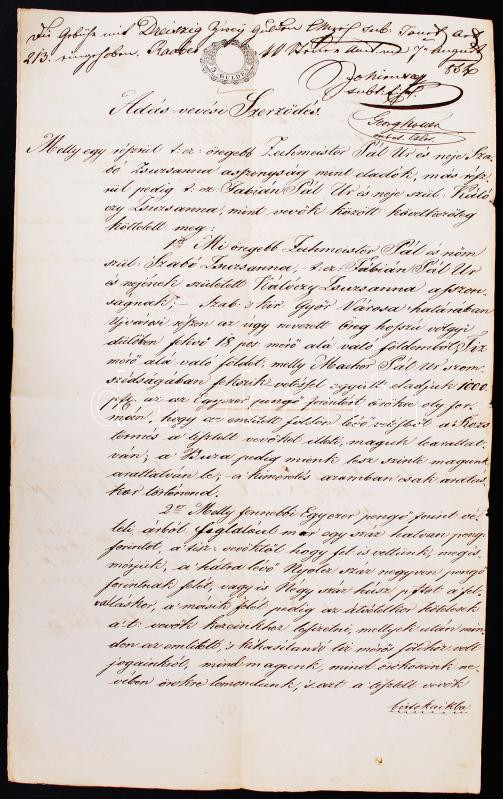 Die Gebühr mit Dreiszig Zwey Gulden CMze sub: Journ Art
213. eingehoben. Raaber Steuer Amt am 7n August
854
5 GULDEN
Adás vevési Szerződés.
Melly egy részrül t: cz: öregebb Zechmeister Pál Ur és neje Sza-
bó Zsuzsanna asszonyság mint eladók, más rész-
rül pedig t: cz: Fabián Pál Ur és neje szül: Káló
czy Zsuzsanna, mint vevők között következőleg
köttetett meg:
1ör Mi öregebb Zechmeister Pál és nőm
szül: Szabó Zsuzsanna, t: cz: Fábián Pál Ur
és nejének született Kálóczy Zsuzsanna asszon-
ságnak; – Szab: s kir: Győr Városa határában
Ujvárosi részen az úgy nevezett Öreg hosszú völgyi
dűlőben fekvő 18 pos: mérő alá való földemből, Tiz
mérő alá való földet, melly Machor Pál Ur szom-
szédságában fekszik vetéssel együtt eladjuk 1000
pft, az az Egyezer pengő forintért örökre, oly for-
mán, hogy az említett földön lévő vetésből a Rozs
termés a tisztelt vevőket illeti, maguk learattat-
ván; a Buza pedig miénk lesz szinte magunk
arattatván le; a kimérés azomban csak aratás-
kor történend.
2or Melly fennebbi Egyezer pengő forint vé-
teli árból foglalóul már egy száz hatvan pengő
forintot, a tisz: vevőktől hogy fel is vettünk, megis-
mérjük, a hátra lévő Nyolcz száz negyven pengő
forintnak felét, vagyis Négy száz húsz pftot a fel-
valláskor, a másik felét pedig az átvételkor kötelesek
a t: vevők kezeinkhez lefizetni, mellyek után min-
den az említett, s kihasítandó tiz mérős földhöz volt
jogainkról, mind magunk, mind örököseink ne-
vében örökre lemondunk, s azt a tisztelt vevők
birtokaikba